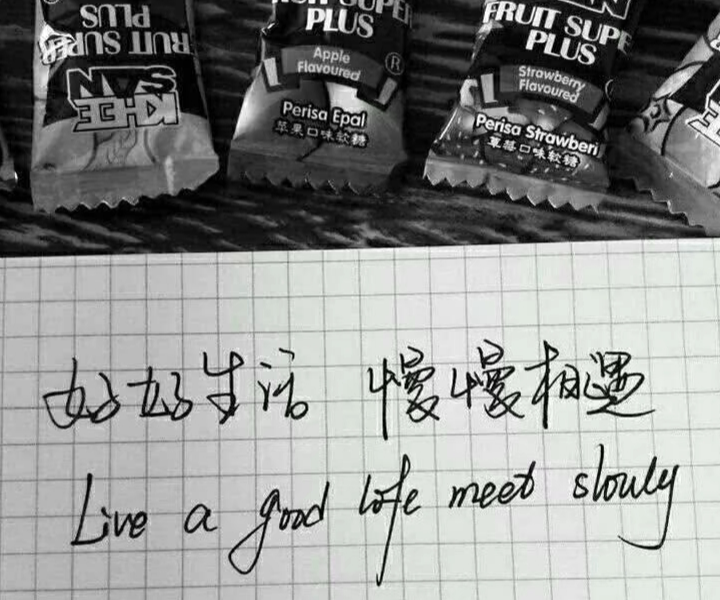 PLUS
FRUIT SUPER
KHEE SAN
FRUIT SUPER
PLUS
Apple
Flavoured
®
Perisa Epal
苹果口味软糖
FRUIT SUPE
PLUS
Strawberry
Flavoured
Perisa Strawberi
草莓口味软糖
好好生活 慢慢相遇
Live a good life meet slowly